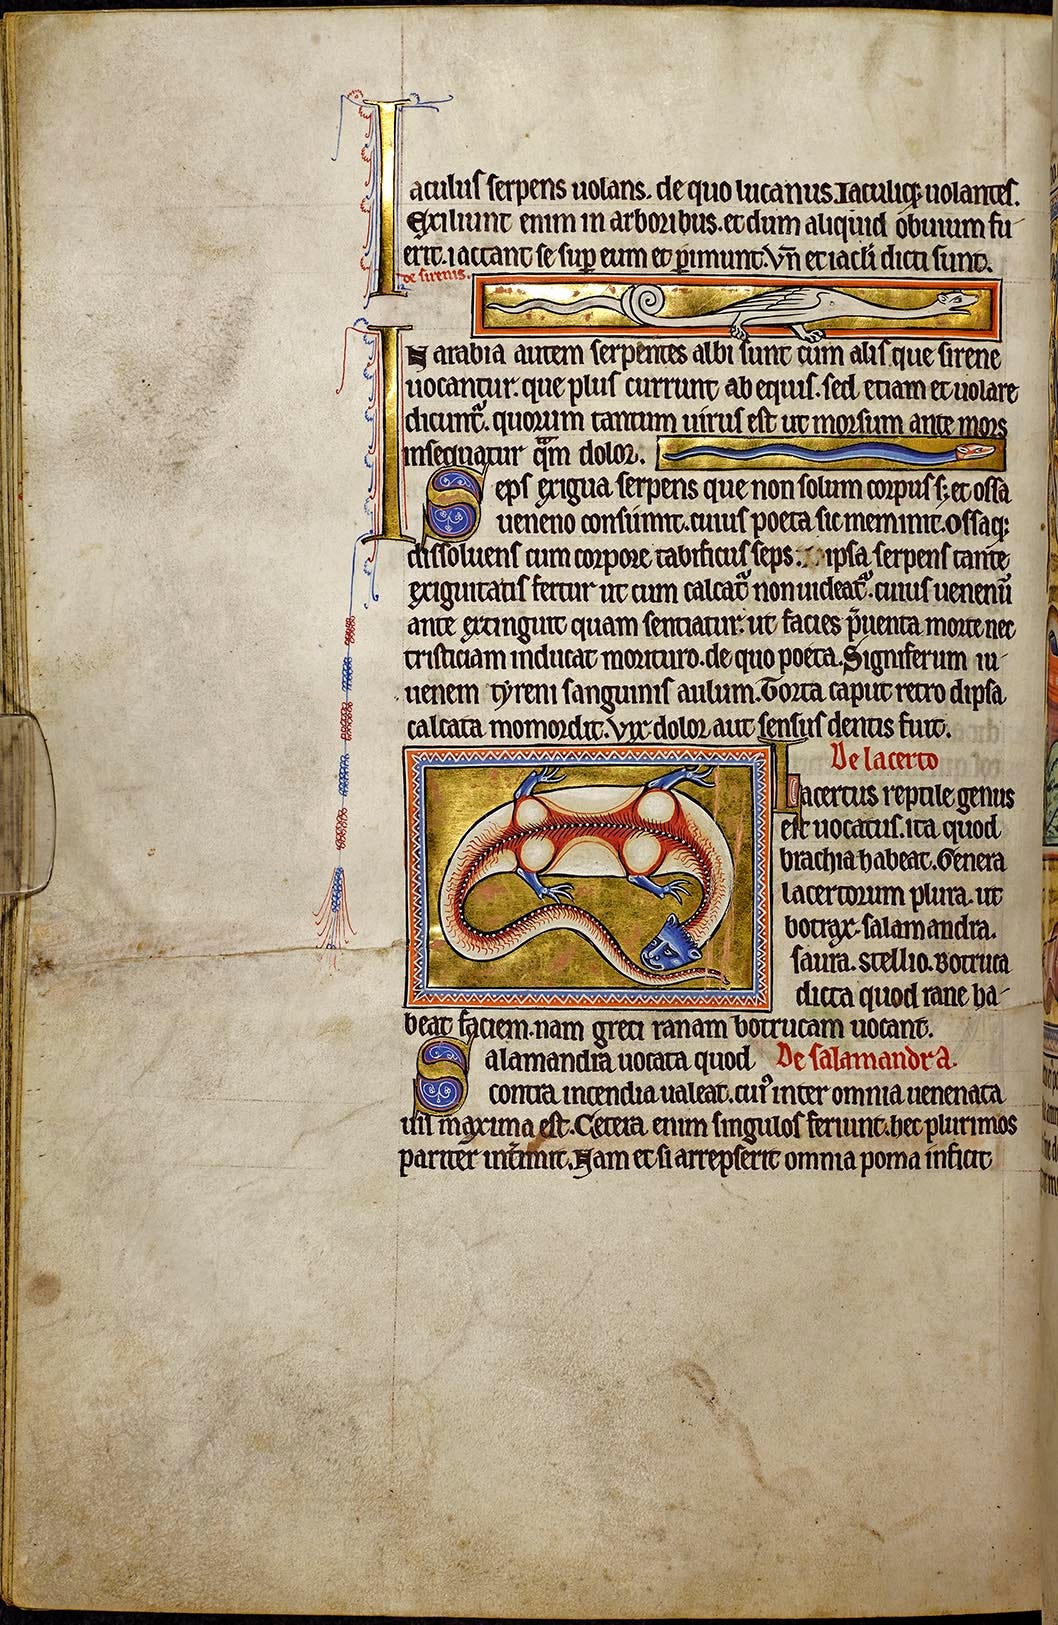 Iaculus serpens uolans. de quo lucanus. Iaculiq; uolantes.
Exiliunt enim in arboribus. et dum aliquid obuium fu-
erit. iactant se sup eum et pimunt. Vn̄ et iacli dicti sunt.
de sirenis.
IN arabia autem serpentes albi sunt cum alis que sirene
uocantur. que plus currunt ab equis. sed etiam et uolare
dicunt̄. quorum tantum uirus est ut morsum ante mors
insequatur q̄m dolor.
Seps exigua serpens que non solum corpus s; et ossa
ueneno consumit. cuius poeta sic meminit. Ossaq;
dissoluens cum corpore tabificus seps. ipsa serpens tante
exiguitatis fertur ut cum calcat̄ non uideat̄. cuius uenenū
ante extinguit quam sentiatur. ut facies p̄uenta morte nec
tristiciam inducat morituro. de quo poeta. Signiferum iu-
uenem tyreni sanguinis aulum. Torta caput retro dipsa
calcata momordit. Vix dolor aut sensus dentis fuit.
De lacerto
Lacertus reptile genus
est uocatus. ita quod
brachia habeat. Genera
lacertorum plura. ut
botrax. salamandra.
saura. stellio. Botruca
dicta quod rane ha-
beat faciem. nam greci ranam botrucam uocant.
Salamandra uocata quod De salamandra.
contra incendia ualeat. cui' inter omnia uenenata
uis maxima est. Cetera enim singulos feriunt. hec plurimos
pariter int̄imit. Nam et si arrepserit omnia poma inficit